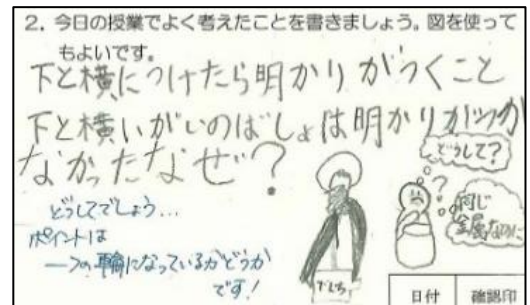 2. 今日の授業でよく考えたことを書きましょう。図を使って
もよいです。
下と横につけたら明かりがつくこと
下と横いがいのばしょは明かりがつか
なかったなぜ?
どうして?
同じ
金属なのに
どうしてでしょう...
ポイントは
一つの輪になっているかどうか
です!
でんち
日付 確認印